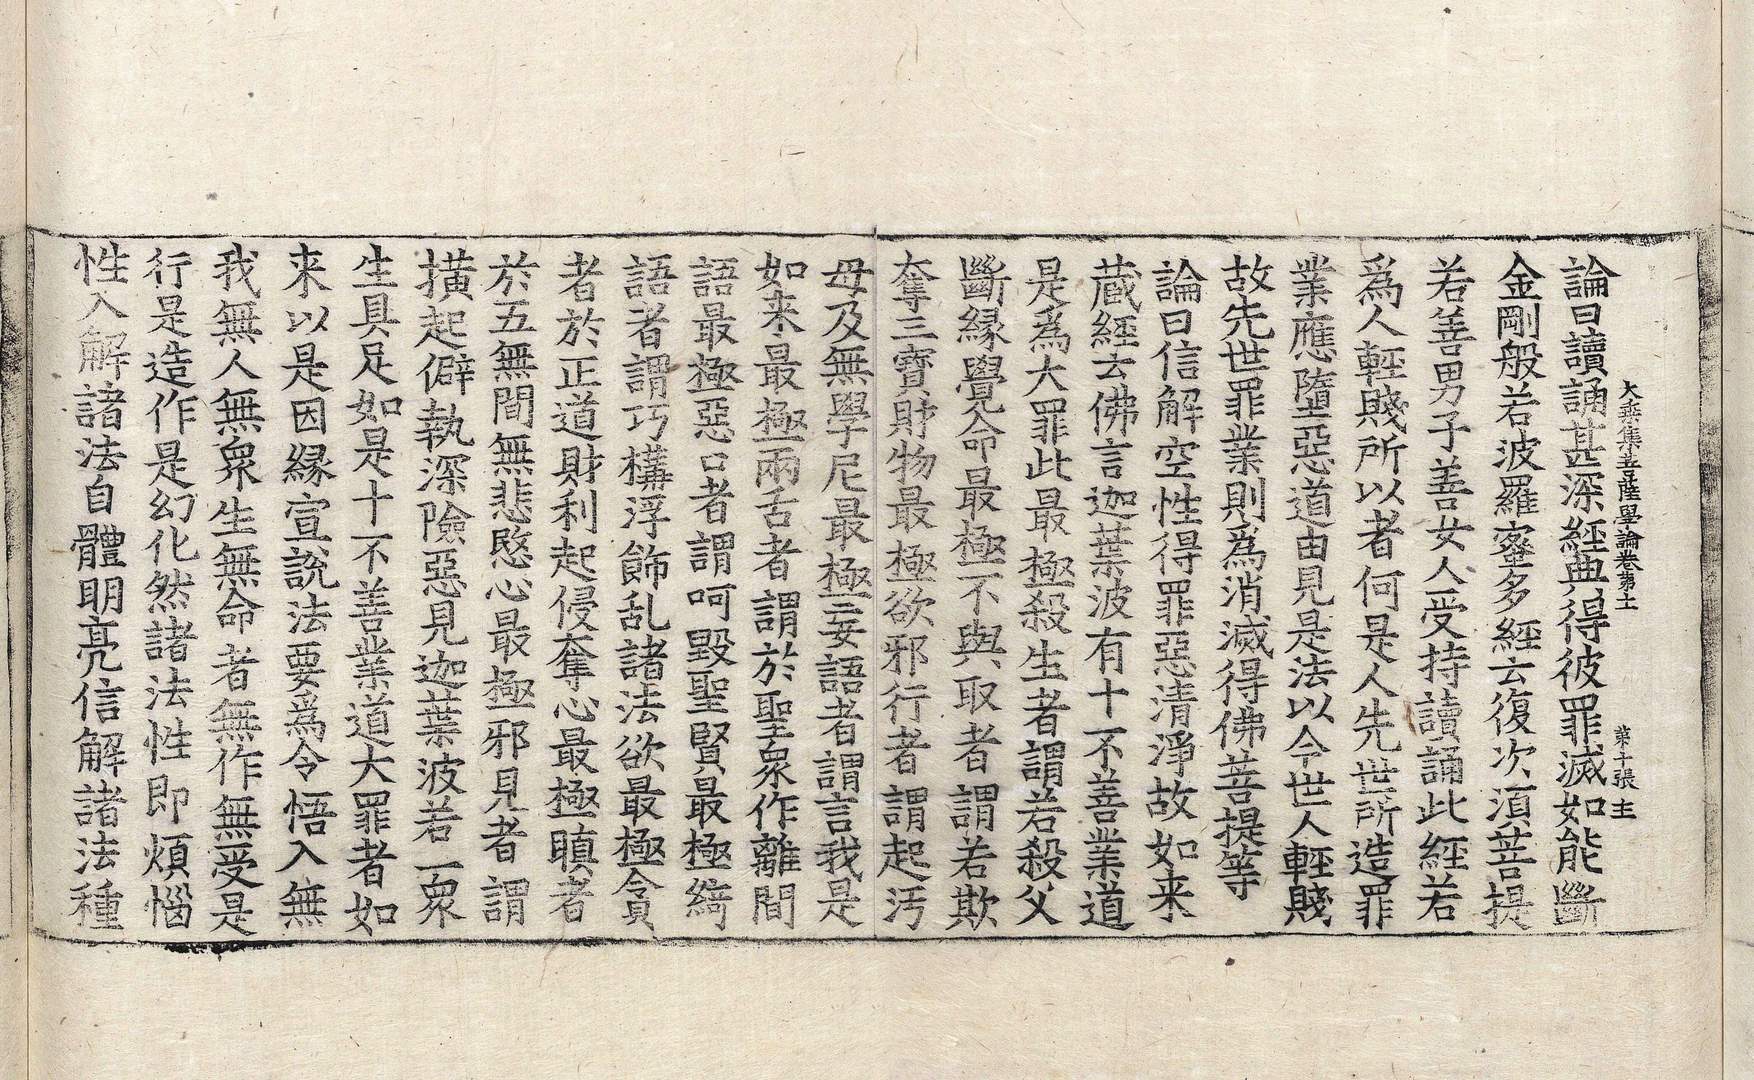 大乘集菩薩學論卷第十 第十張 主
論曰讀誦甚深經典得彼罪滅如能斷
金剛般若波羅蜜多經云復次須菩提
若善男子善女人受持讀誦此經若
爲人輕賤所以者何是人先世所造罪
業應墮惡道由見是法以今世人輕賤
故先世罪業則爲消滅得佛菩提等
論曰信解空性得罪惡清淨故如来
蔵經云佛言迦葉波有十不善業道
是爲大罪此最極殺生者謂若殺父
斷緣覺命最極不與取者謂若欺
奪三寶財物最極欲邪行者謂起汚
母及無學尼最極妄語者謂言我是
如来最極兩舌者謂於聖衆作離間
語最極惡口者謂呵毀聖賢最極綺
語者謂巧構浮飾乱諸法欲最極貪
者於正道財利起侵奪心最極瞋者
於五無間無悲愍心最極邪見者謂
撗起僻執深險惡見迦葉波若一衆
生具足如是十不善業道大罪者如
来以是因緣宣說法要爲令悟入無
我無人無衆生無命者無作無受是
行是造作是幻化然諸法性即煩惱
性入解諸法自體明亮信解諸法種